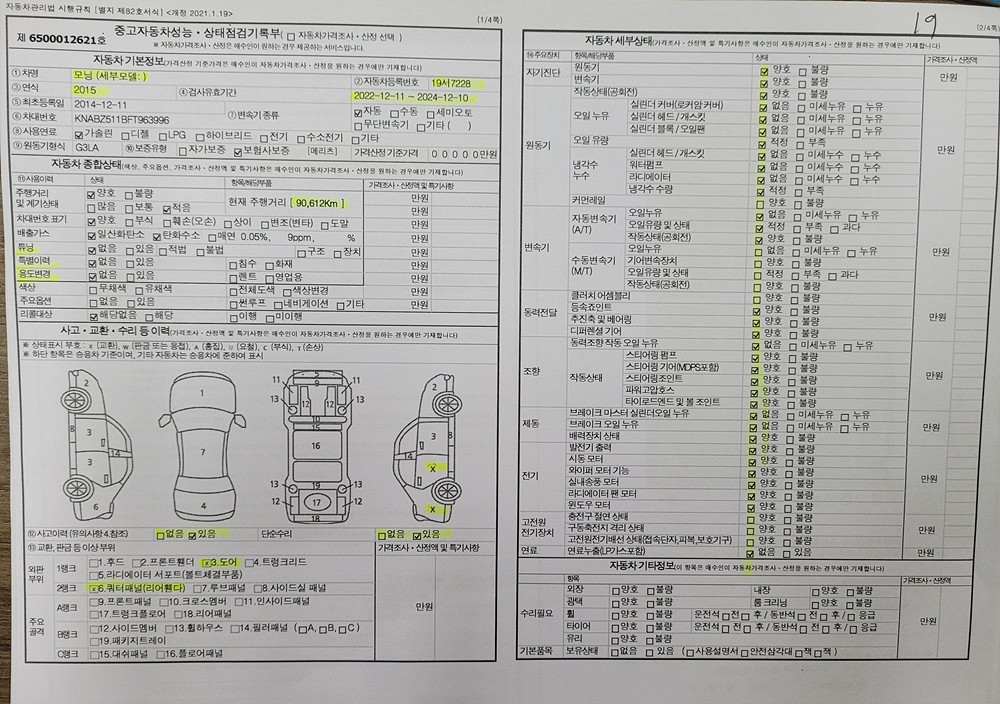 자동차관리법 시행규칙 [별지 제82호서식] <개정 2021.1.19>
(1/4쪽)
제 6500012621호
중고자동차성능·상태점검기록부 (□ 자동차가격조사·산정 선택 )
※ 자동차가격조사·산정은 매수인이 원하는 경우 제공하는 서비스입니다.
자동차 기본정보(가격산정 기준가격은 매수인이 자동차가격조사·산정을 원하는 경우에만 기재합니다)
① 차명 모닝 (세부모델: ) ② 자동차등록번호 19서7228
③ 연식 2015 ④ 검사유효기간 2022-12-11 ~ 2024-12-10
⑤ 최초등록일 2014-12-11 ⑦ 변속기 종류 ☑자동 □수동 □세미오토
⑥ 차대번호 KNABZ511BFT963996 □무단변속기 □기타 ( )
⑧ 사용연료 ☑가솔린 □디젤 □LPG □하이브리드 □전기 □수소전기 □기타
⑨ 원동기형식 G3LA ⑩ 보증유형 □자가보증 ☑보험사보증 [메리츠] 가격산정 기준가격 0 0 0 0 0 만원
자동차 종합상태(색상, 주요옵션, 가격조사·산정액 및 특기사항은 매수인이 자동차가격조사·산정을 원하는 경우에만 기재합니다)
⑪ 사용이력 상태 항목/해당부품 가격조사·산정액 및 특기사항
주행거리 및 계기상태 ☑양호 □불량 현재 주행거리 [ 90,612Km ] 만원
□많음 □보통 ☑적음 만원
차대번호 표기 ☑양호 □부식 □훼손(오손) □상이 □변조(변타) □도말 만원
배출가스 ☑일산화탄소 ☑탄화수소 □매연 0.05%, 9ppm, % 만원
튜닝 ☑없음 □있음 □적법 □불법 □구조 □장치 만원
특별이력 ☑없음 □있음 □침수 □화재 만원
용도변경 ☑없음 □있음 □렌트 □영업용 만원
색상 □무채색 □유채색 □전체도색 □색상변경 만원
주요옵션 □없음 □있음 □썬루프 □네비게이션 □기타 만원
리콜대상 ☑해당없음 □해당 □이행 □미이행
사고·교환·수리 등 이력(가격조사·산정액 및 특기사항은 매수인이 자동차가격조사·산정을 원하는 경우에만 기재합니다)
※ 상태표시 부호 : X (교환), W (판금 또는 용접), A (흠집), U (요철), C (부식), T (손상)
※ 하단 항목은 승용차 기준이며, 기타 자동차는 승용차에 준하여 표시
2 3 8 14 3 6
1 7 4
5 9 11 11 12 12 13 13 15 16 19 13 13 12 12 17 18
2 3 8 14 X X
⑫ 사고이력 (유의사항 4.참조) □없음 ☑있음 단순수리 □없음 ☑있음
⑬ 교환, 판금 등 이상 부위 가격조사·산정액 및 특기사항
외판부위 1랭크 □1.후드 □2.프론트휀더 ☒3.도어 □4.트렁크리드
□5.라디에이터 서포트(볼트체결부품)
2랭크 ☒6.쿼터패널(리어휀다) □7.루프패널 □8.사이드실 패널
주요골격 A랭크 □9.프론트패널 □10.크로스멤버 □11.인사이드패널
□17.트렁크플로어 □18.리어패널
만원
B랭크 □12.사이드멤버 □13.휠하우스 □14.필러패널 (□A, □B, □C)
□19.패키지트레이
C랭크 □15.대쉬패널 □16.플로어패널
19
(2/4쪽)
자동차 세부상태(가격조사·산정액 및 특기사항은 매수인이 자동차가격조사·산정을 원하는 경우에만 기재합니다)
⑭ 주요장치 항목/해당부품 상태 가격조사·산정액
자기진단 원동기 ☑양호 □불량 만원
변속기 ☑양호 □불량
원동기 작동상태(공회전) ☑양호 □불량
오일 누유 실린더 커버(로커암 커버) ☑없음 □미세누유 □누유
실린더 헤드 / 개스킷 ☑없음 □미세누유 □누유
실린더 블록 / 오일팬 ☑없음 □미세누유 □누유
오일 유량 ☑적정 □부족
만원
냉각수 누수 실린더 헤드 / 개스킷 ☑없음 □미세누수 □누수
워터펌프 ☑없음 □미세누수 □누수
라디에이터 ☑없음 □미세누수 □누수
냉각수 수량 ☑적정 □부족
커먼레일 □양호 □불량
변속기 자동변속기 (A/T) 오일누유 ☑없음 □미세누유 □누유
오일유량 및 상태 ☑적정 □부족 □과다
작동상태(공회전) ☑양호 □불량
만원
수동변속기 (M/T) 오일누유 □없음 □미세누유 □누유
기어변속장치 □양호 □불량
오일유량 및 상태 □적정 □부족 □과다
작동상태(공회전) □양호 □불량
동력전달 클러치 어셈블리 □양호 □불량
등속죠인트 ☑양호 □불량
추진축 및 베어링 □양호 □불량
디퍼렌셜 기어 ☑양호 □불량
만원
조향 동력조향 작동 오일 누유 ☑없음 □미세누유 □누유
작동상태 스티어링 펌프 ☑양호 □불량
스티어링 기어(MDPS포함) ☑양호 □불량
스티어링조인트 ☑양호 □불량
파워고압호스 ☑양호 □불량
타이로드엔드 및 볼 조인트 ☑양호 □불량
만원
제동 브레이크 마스터 실린더오일 누유 ☑없음 □미세누유 □누유
브레이크 오일 누유 ☑없음 □미세누유 □누유
배력장치 상태 ☑양호 □불량
만원
전기 발전기 출력 ☑양호 □불량
시동 모터 ☑양호 □불량
와이퍼 모터 기능 ☑양호 □불량
실내송풍 모터 ☑양호 □불량
라디에이터 팬 모터 ☑양호 □불량
윈도우 모터 ☑양호 □불량
만원
고전원 전기장치 충전구 절연 상태 □양호 □불량
구동축전지 격리 상태 □양호 □불량
고전원전기배선 상태(접속단자,피복,보호기구) □양호 □불량
만원
연료 연료누출(LP가스포함) ☑없음 □있음 만원
자동차 기타정보(이 항목은 매수인이 자동차가격조사·산정을 원하는 경우에만 기재합니다)
항목 가격조사·산정액
수리필요 외장 □양호 □불량 내장 □양호 □불량
광택 □양호 □불량 룸 크리닝 □양호 □불량
휠 □양호 □불량 운전석 □전 □후 / 동반석 □전 □후 / □응급
타이어 □양호 □불량 운전석 □전 □후 / 동반석 □전 □후 / □응급
유리 □양호 □불량
만원
기본품목 보유상태 □없음 □있음 (□사용설명서 □안전삼각대 □잭 □잭 )